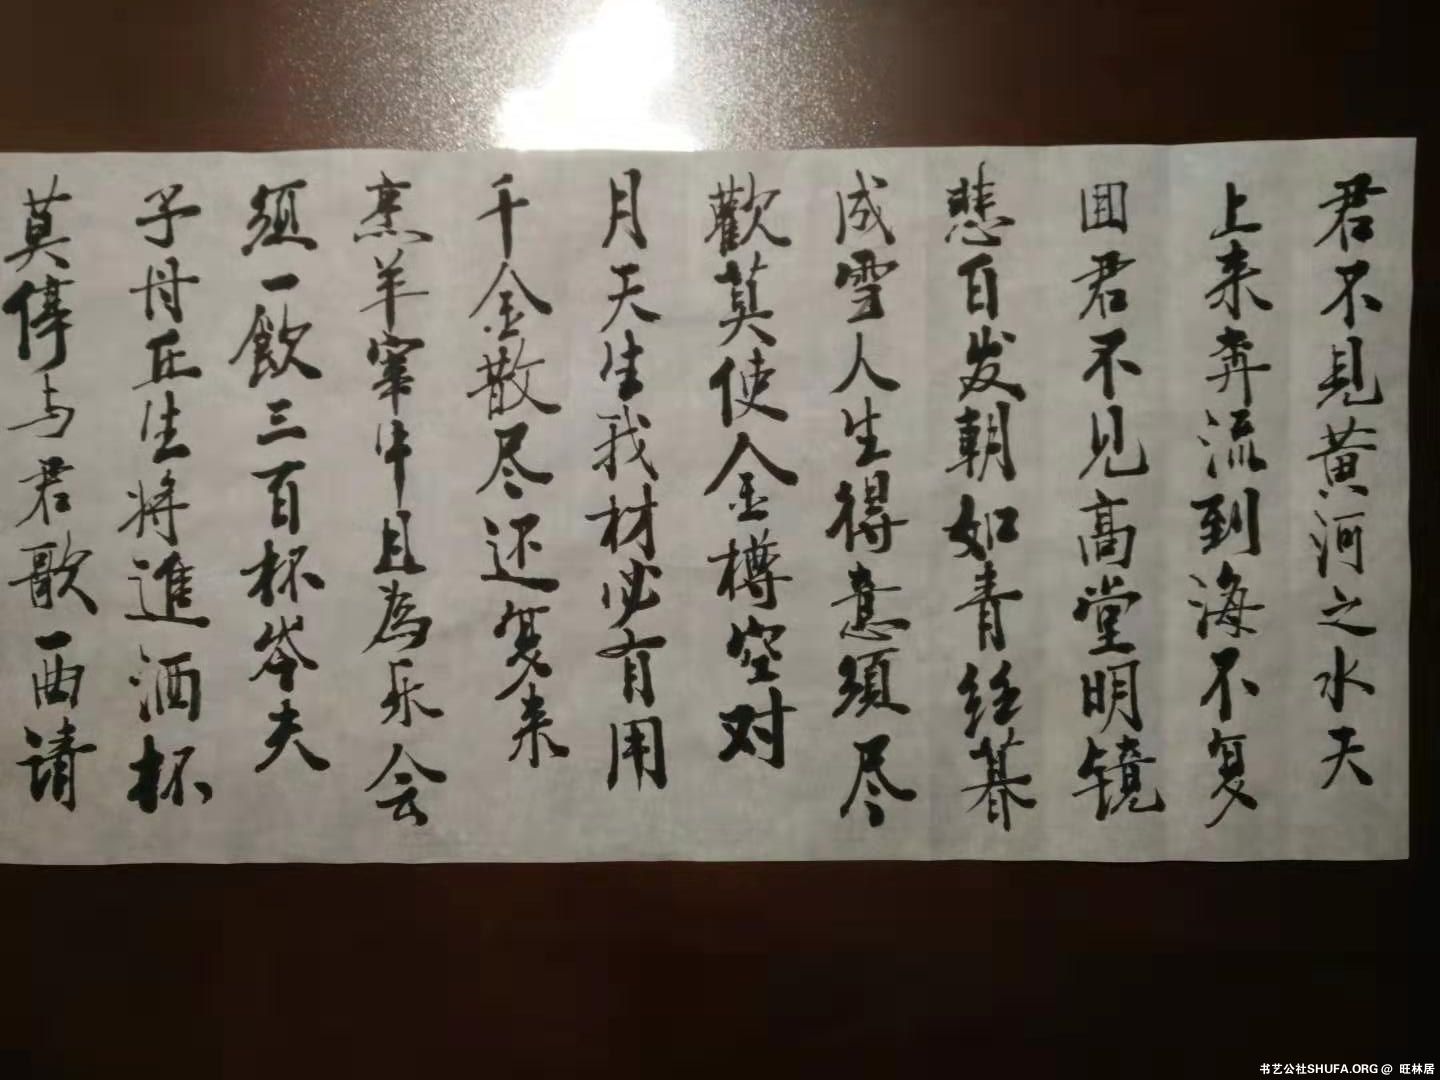 君不見黄河之水天
上来奔流到海不复
回君不见高堂明镜
悲白发朝如青丝暮
成雪人生得意须尽
歡莫使金樽空对
月天生我材必有用
千金散尽还复来
烹羊宰牛且為乐会
须一飲三百杯岑夫
子丹丘生将進酒杯
莫停与君歌一曲请
书艺公社SHUFA.ORG @ 旺林居